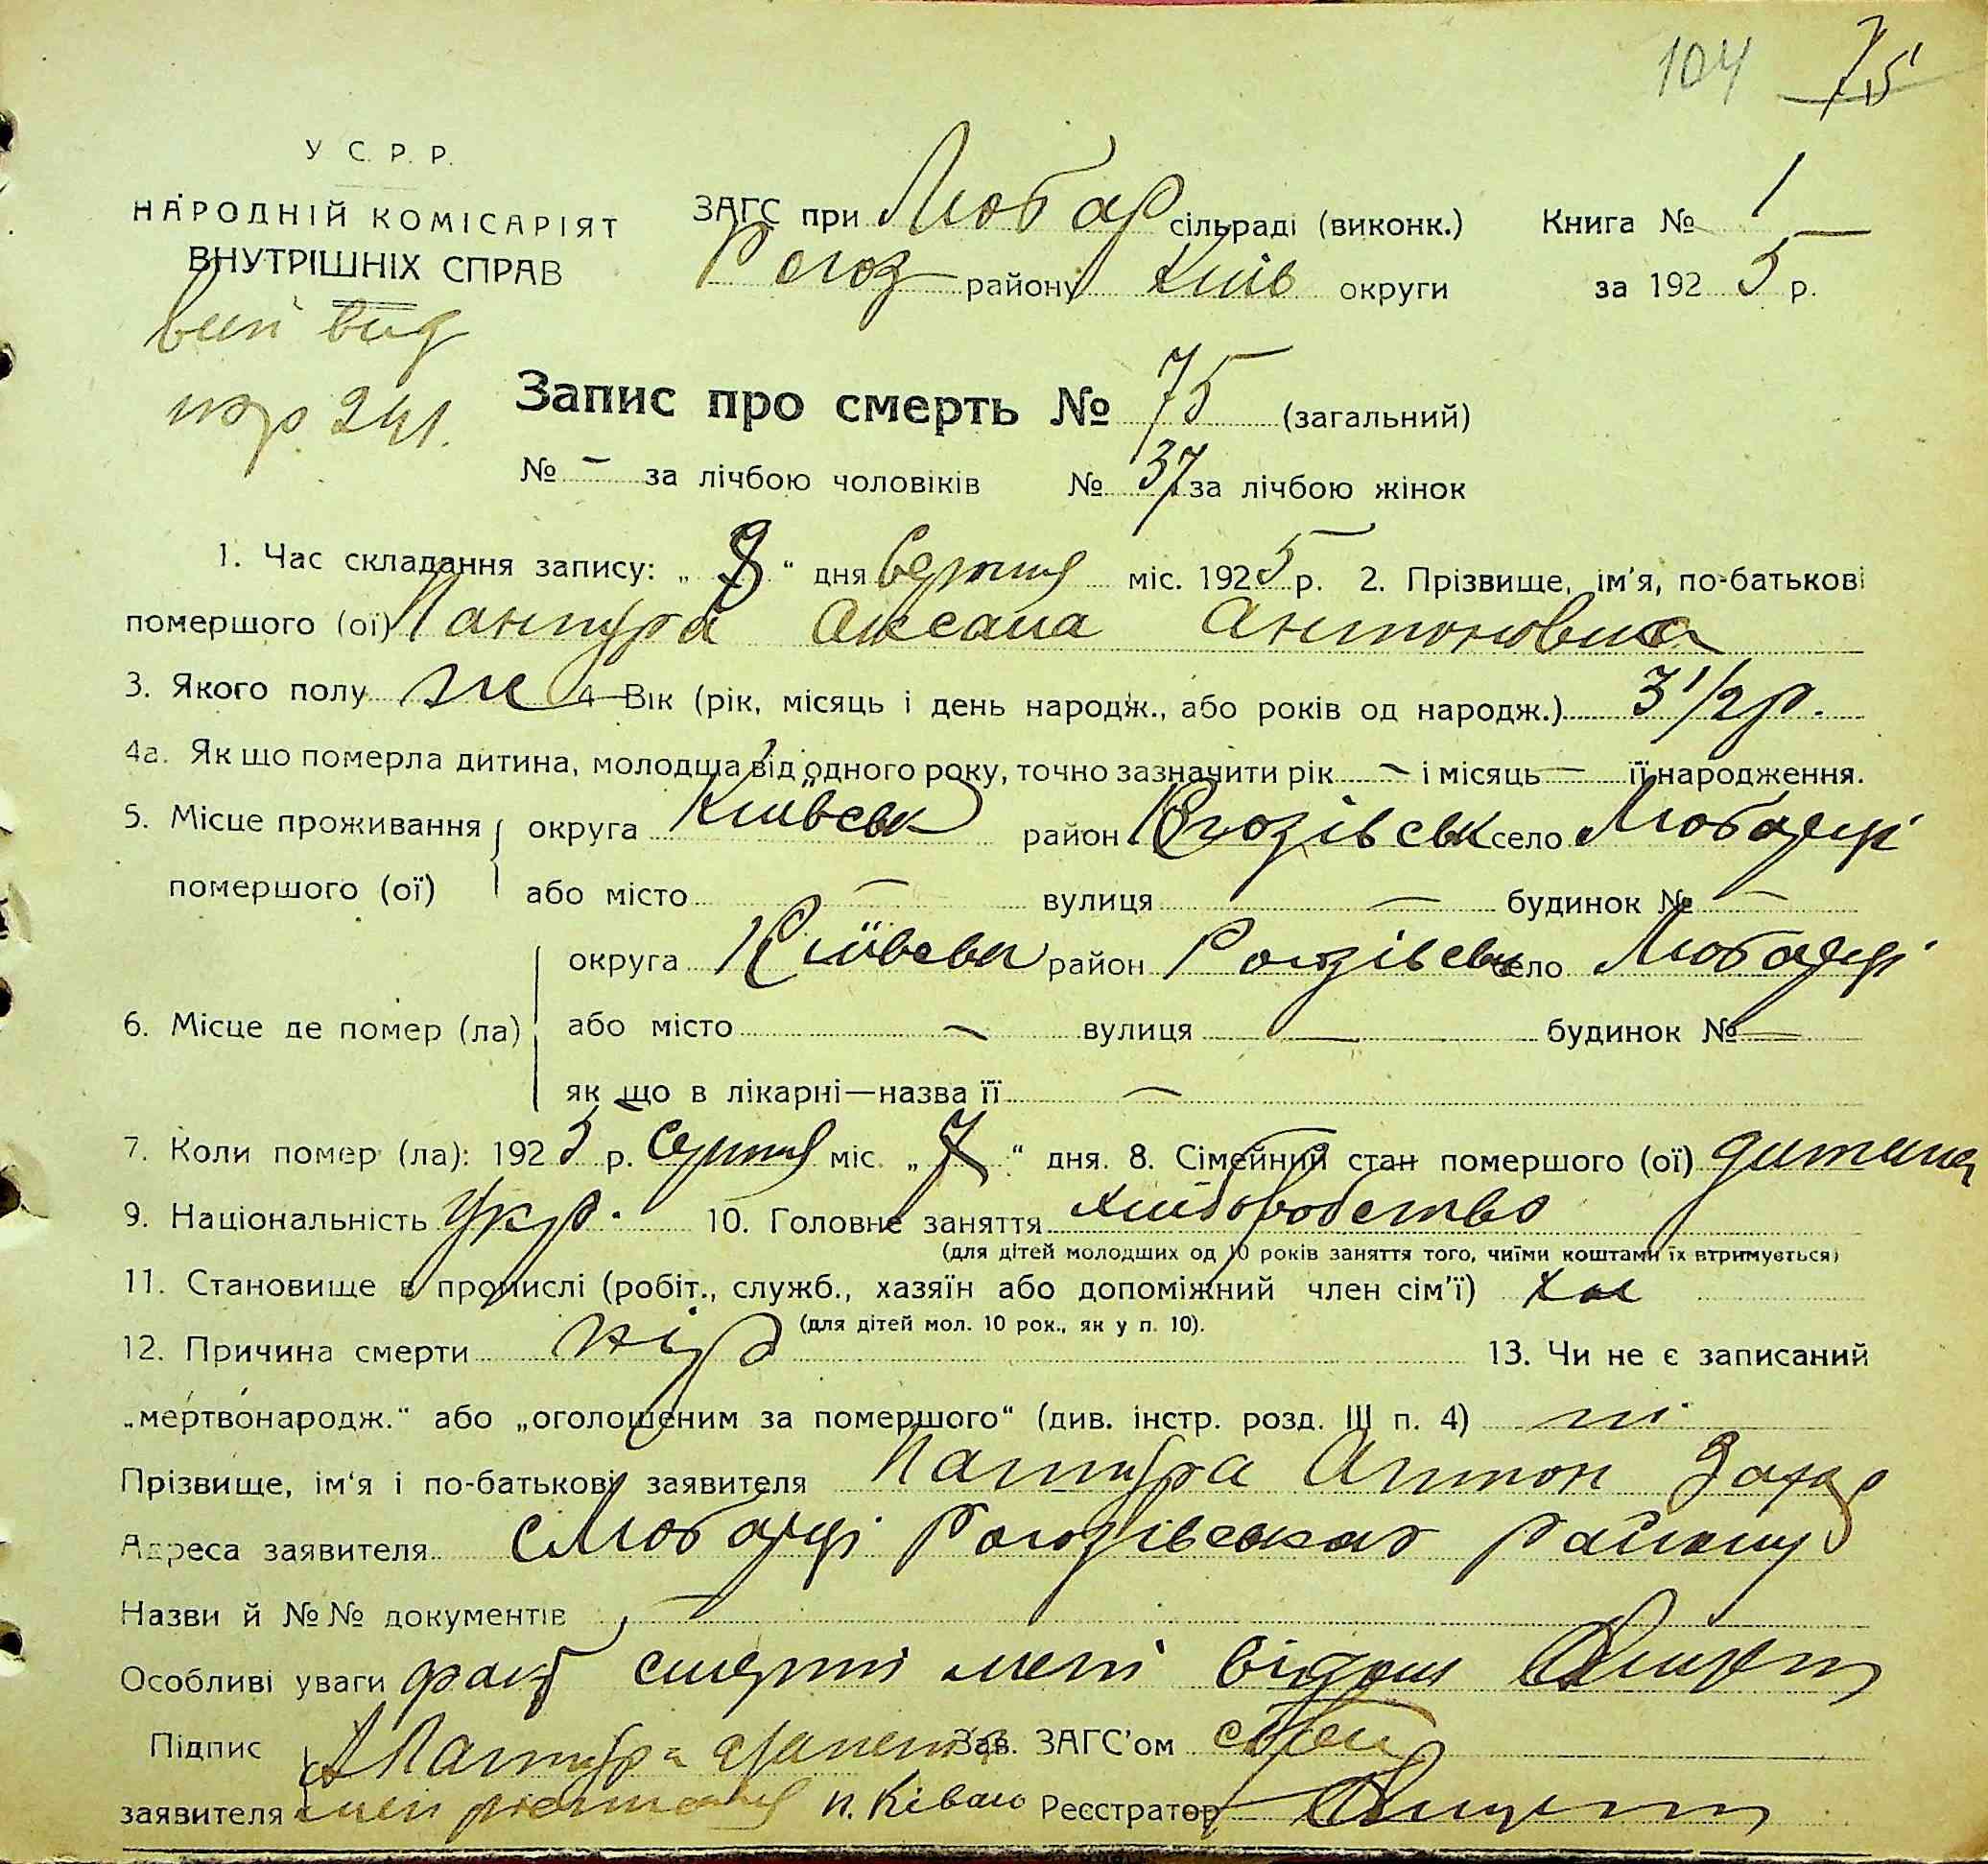 104 75
У С. Р. Р.
НАРОДНІЙ КОМІСАРІЯТ
ВНУТРІШНІХ СПРАВ
ЗАГС при Любар сільраді (виконк.) Книга № 1
Рогоз району Київ округи за 1925 р.
вид
241.
Запис про смерть № 75 (загальний)
№ – за лічбою чоловіків № 37 за лічбою жінок
1. Час складання запису: „8“ дня Серпня міс. 1925 р. 2. Прізвище, ім'я, по-батькові
помершого (ої) Пантура Оксана Антоновна
3. Якого полу ж 4 Вік (рік, місяць і день народж., або років од народж.) 3 1/2 р.
4а. Як що померла дитина, молодша від одного року, точно зазначити рік – і місяць – її народження.
5. Місце проживання округа Київськ район Рогозівськ село Любарці
помершого (ої) або місто – вулиця – будинок № –
округа Київськ район Рогозівськ село Любарці
6. Місце де помер (ла) або місто – вулиця – будинок № –
як що в лікарні—назва її –
7. Коли помер (ла): 1925 р. Серпня міс. „7“ дня. 8. Сімейний стан помершого (ої) дитина
9. Національність Укр. 10. Головне заняття хліборобство
(для дітей молодших од 10 років заняття того, чиїми коштами їх втримується)
11. Становище в промислі (робіт., служб., хазяїн або допоміжний член сім'ї) хаз
(для дітей мол. 10 рок., як у п. 10).
12. Причина смерти кір 13. Чи не є записаний
„мертвонародж.“ або „оголошеним за помершого“ (див. інстр. розд. III п. 4) ні
Прізвище, ім'я і по-батькові заявителя Пантура Антон Захар
Адреса заявителя с Любарці Рогозівського району
Назви й №№ документів –
Особливі уваги факт смерти мені відом
Підпис Пантура Зав. ЗАГС'ом
заявителя Реєстратор